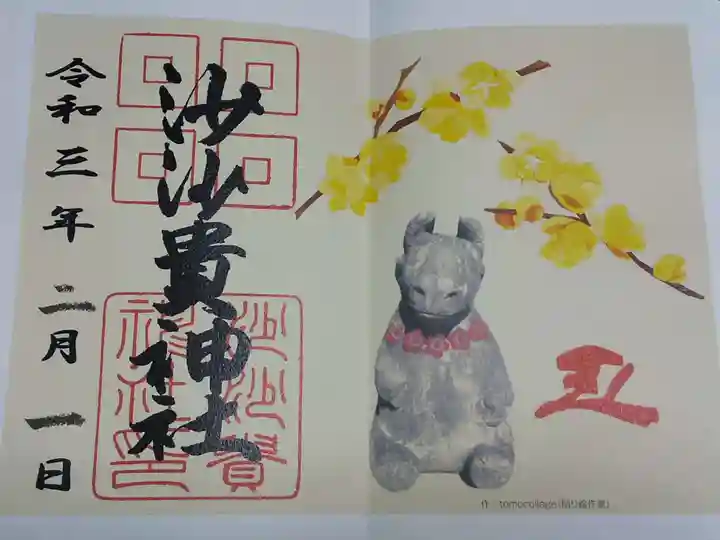 令和三年 二月 一日
沙沙貴神社
沙沙貴
神社印
丑
作 tomocollage(貼り絵作家)